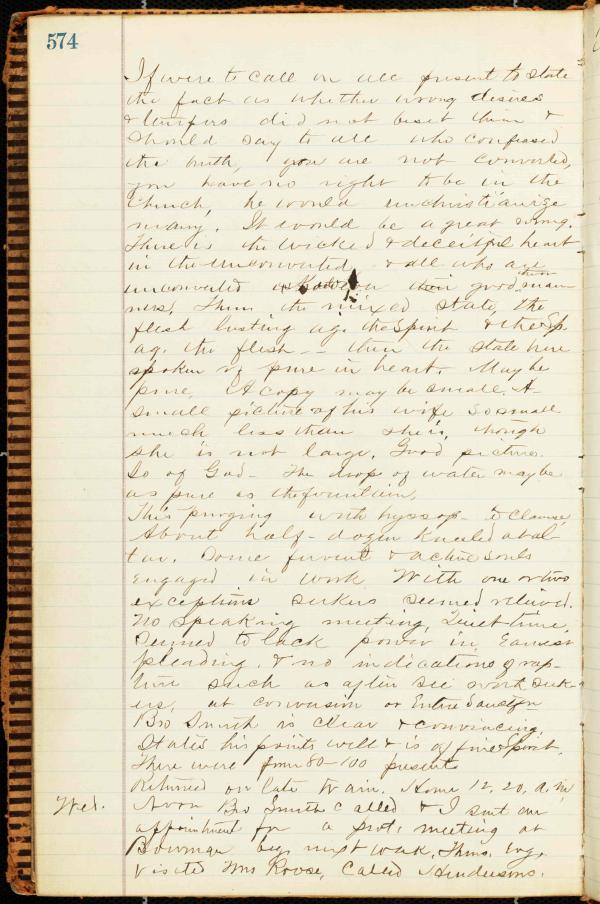 574
If were to call on all present to state
the fact as whether wrong desires
& tempers did not beset them &
should say to all who confessed
the truth, you are not converted,
you have no right to be in the
Church, he would unchristianize
many. It would be a great wrong.
There is the wicked & deceitful heart
in the unconverted, & all who are
unconverted good man-
ners. Then the mixed state, the
flesh lusting ag. the Spirit & the Sp.
ag. the flesh -- then the state here
spoken of pure in heart. May be
pure. A copy may be small. A
small picture of his wife so small
much less than she is, though
she is not large. Good picture.
So of God - The drop of water may be
as pure as the fountain.
This purging with hyssop - to cleanse,
About half-dozen kneeled at al-
tar. Some fervent & active souls
engaged in work. With one or two
exceptions seekers seemed relieved.
No speaking meeting, Quiet time,
Seemed to lack power in Earnest
pleading, & no indications of rap-
ture such as often see work seek-
ers, at conversion or Entire Sanctfn
Bro Smith is clear & convincing.
States his points well & is of fine Spirit.
There were from 80-100 present
Returned on late train. Home 12.20, A.M.
Wed.
Noon Bro Smith called & I sent an
appointment for a prot. meeting at
Bowman beg. next week, Thurs. evg.
Visited Mrs Roose, Called Hendersons.